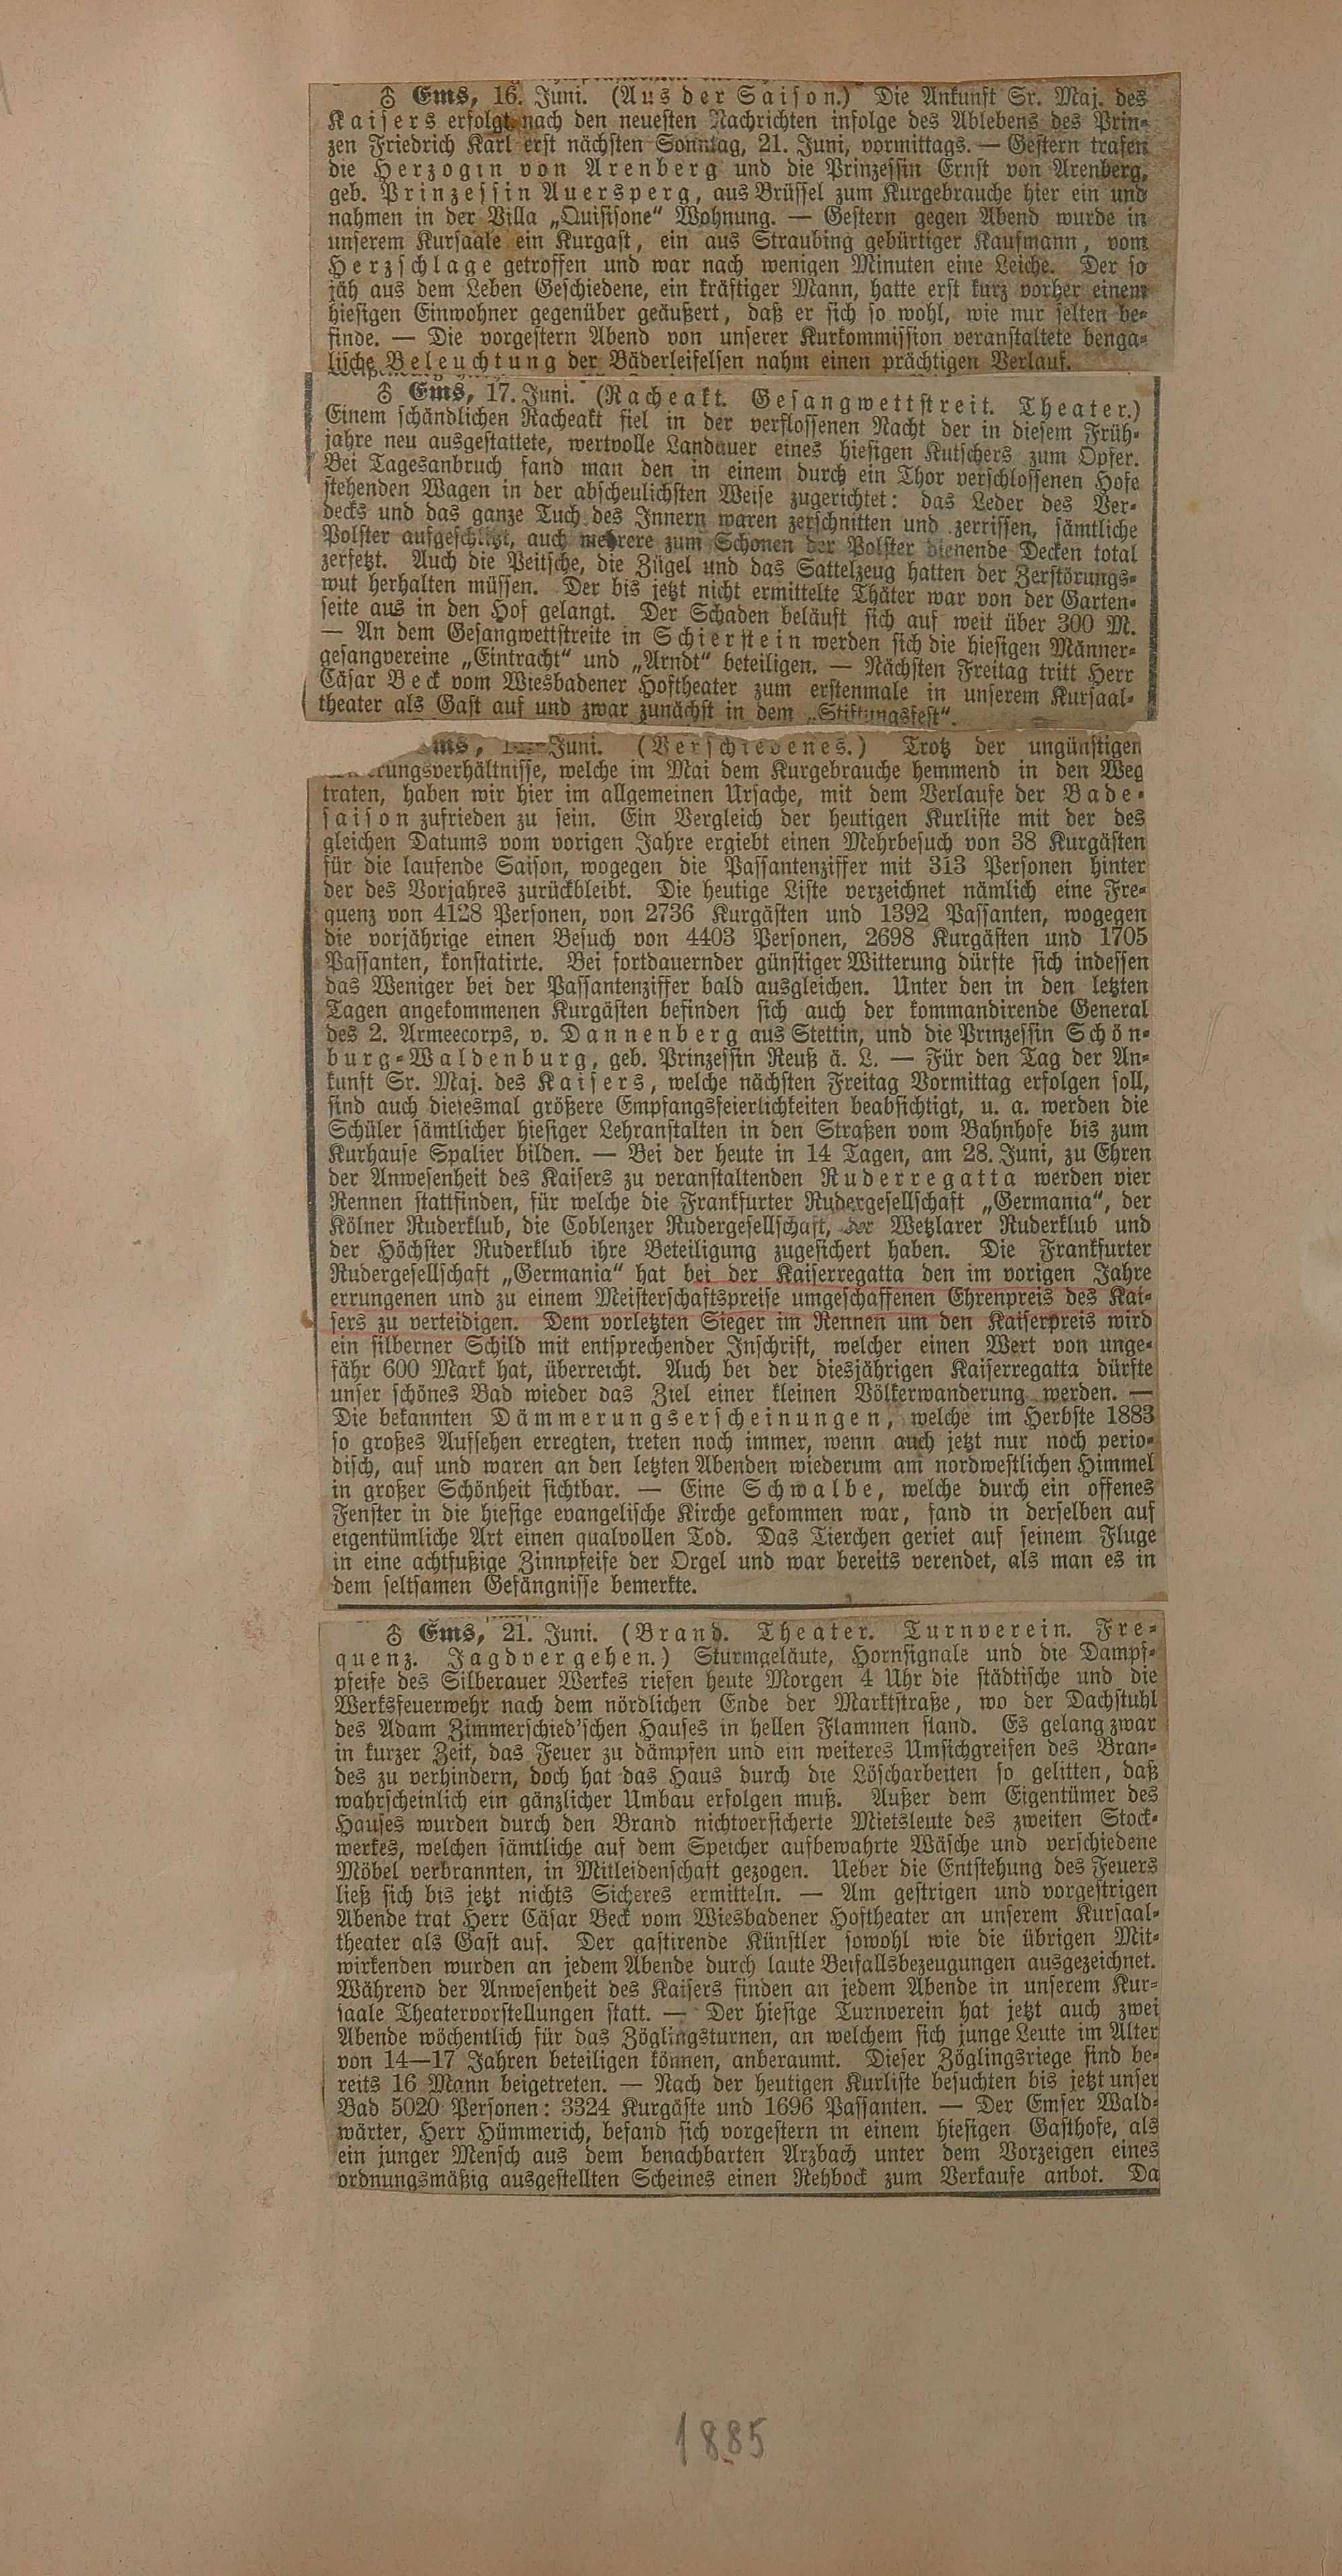 ♁ Ems, 16. Juni. (Aus der Saison.) Die Ankunft Sr. Maj. des
Kaisers erfolgt nach den neuesten Nachrichten infolge des Ablebens des Prin-
zen Friedrich Karl erst nächsten Sonntag, 21. Juni, vormittags. — Gestern trafen
die Herzogin von Arenberg und die Prinzessin Ernst von Arenberg,
geb. Prinzessin Auersperg, aus Brüssel zum Kurgebrauche hier ein und
nahmen in der Villa „Quisisone“ Wohnung. — Gestern gegen Abend wurde in
unserem Kursaale ein Kurgast, ein aus Straubing gebürtiger Kaufmann, vom
Herzschlage getroffen und war nach wenigen Minuten eine Leiche. Der so
jäh aus dem Leben Geschiedene, ein kräftiger Mann, hatte erst kurz vorher einem
hiesigen Einwohner gegenüber geäußert, daß er sich so wohl, wie nur selten be-
finde. — Die vorgestern Abend von unserer Kurkommission veranstaltete benga-
lische Beleuchtung der Bäderleifelsen nahm einen prächtigen Verlauf.
♁ Ems, 17. Juni. (Racheakt. Gesangwettstreit. Theater.)
Einem schändlichen Racheakt fiel in der verflossenen Nacht der in diesem Früh-
jahre neu ausgestattete, wertvolle Landauer eines hiesigen Kutschers zum Opfer.
Bei Tagesanbruch fand man den in einem durch ein Thor verschlossenen Hofe
stehenden Wagen in der abscheulichsten Weise zugerichtet: das Leder des Ver-
decks und das ganze Tuch des Innern waren zerschnitten und zerrissen, sämtliche
Polster aufgeschlitzt, auch mehrere zum Schonen der Polster dienende Decken total
zersetzt. Auch die Peitsche, die Zügel und das Sattelzeug hatten der Zerstörungs-
wut herhalten müssen. Der bis jetzt nicht ermittelte Thäter war von der Garten-
seite aus in den Hof gelangt. Der Schaden beläuft sich auf weit über 300 M.
— An dem Gesangwettstreite in Schierstein werden sich die hiesigen Männer-
gesangvereine „Eintracht“ und „Arndt“ beteiligen. — Nächsten Freitag tritt Herr
Cäsar Beck vom Wiesbadener Hoftheater zum erstenmale in unserem Kursaal-
theater als Gast auf und zwar zunächst in dem „Stiftungsfest“.
Ems, Juni. (Verschiedenes.) Trotz der ungünstigen
rungsverhältnisse, welche im Mai dem Kurgebrauche hemmend in den Weg
traten, haben wir hier im allgemeinen Ursache, mit dem Verlaufe der Bade-
saison zufrieden zu sein. Ein Vergleich der heutigen Kurliste mit der des
gleichen Datums vom vorigen Jahre ergiebt einen Mehrbesuch von 38 Kurgästen
für die laufende Saison, wogegen die Passantenziffer mit 313 Personen hinter
der des Vorjahres zurückbleibt. Die heutige Liste verzeichnet nämlich eine Fre-
quenz von 4128 Personen, von 2736 Kurgästen und 1392 Passanten, wogegen
die vorjährige einen Besuch von 4403 Personen, 2698 Kurgästen und 1705
Passanten, konstatirte. Bei fortdauernder günstiger Witterung dürfte sich indessen
das Weniger bei der Passantenziffer bald ausgleichen. Unter den in den letzten
Tagen angekommenen Kurgästen befinden sich auch der kommandirende General
des 2. Armeecorps, v. Dannenberg aus Stettin, und die Prinzessin Schön-
burg-Waldenburg, geb. Prinzessin Reuß ä. L. — Für den Tag der An-
kunft Sr. Maj. des Kaisers, welche nächsten Freitag Vormittag erfolgen soll,
sind auch diesesmal größere Empfangsfeierlichkeiten beabsichtigt, u. a. werden die
Schüler sämtlicher hiesiger Lehranstalten in den Straßen vom Bahnhofe bis zum
Kurhause Spalier bilden. — Bei der heute in 14 Tagen, am 28. Juni, zu Ehren
der Anwesenheit des Kaisers zu veranstaltenden Ruderregatta werden vier
Rennen stattfinden, für welche die Frankfurter Rudergesellschaft „Germania“, der
Kölner Ruderklub, die Coblenzer Rudergesellschaft, der Wetzlarer Ruderklub und
der Höchster Ruderklub ihre Beteiligung zugesichert haben. Die Frankfurter
Rudergesellschaft „Germania“ hat bei der Kaiserregatta den im vorigen Jahre
errungenen und zu einem Meisterschaftspreise umgeschaffenen Ehrenpreis des Kai-
sers zu verteidigen. Dem vorletzten Sieger im Rennen um den Kaiserpreis wird
ein silberner Schild mit entsprechender Inschrift, welcher einen Wert von unge-
fähr 600 Mark hat, überreicht. Auch bei der diesjährigen Kaiserregatta dürfte
unser schönes Bad wieder das Ziel einer kleinen Völkerwanderung werden. —
Die bekannten Dämmerungserscheinungen, welche im Herbste 1883
so großes Aufsehen erregten, treten noch immer, wenn auch jetzt nur noch perio-
disch, auf und waren an den letzten Abenden wiederum am nordwestlichen Himmel
in großer Schönheit sichtbar. — Eine Schwalbe, welche durch ein offenes
Fenster in die hiesige evangelische Kirche gekommen war, fand in derselben auf
eigentümliche Art einen qualvollen Tod. Das Tierchen geriet auf seinem Fluge
in eine achtfußige Zinnpfeife der Orgel und war bereits verendet, als man es in
dem seltsamen Gefängnisse bemerkte.
♁ Ems, 21. Juni. (Brand. Theater. Turnverein. Fre-
quenz. Jagdvergehen.) Sturmgeläute, Hornsignale und die Dampf-
pfeife des Silberauer Werkes riefen heute Morgen 4 Uhr die städtische und die
Werksfeuerwehr nach dem nördlichen Ende der Marktstraße, wo der Dachstuhl
des Adam Zimmerschied'schen Hauses in hellen Flammen stand. Es gelang zwar
in kurzer Zeit, das Feuer zu dämpfen und ein weiteres Umsichgreifen des Bran-
des zu verhindern, doch hat das Haus durch die Löscharbeiten so gelitten, daß
wahrscheinlich ein gänzlicher Umbau erfolgen muß. Außer dem Eigentümer des
Hauses wurden durch den Brand nichtversicherte Mietsleute des zweiten Stock-
werkes, welchen sämtliche auf dem Speicher aufbewahrte Wäsche und verschiedene
Möbel verbrannten, in Mitleidenschaft gezogen. Ueber die Entstehung des Feuers
ließ sich bis jetzt nichts Sicheres ermitteln. — Am gestrigen und vorgestrigen
Abende trat Herr Cäsar Beck vom Wiesbadener Hoftheater an unserem Kursaal-
theater als Gast auf. Der gastirende Künstler sowohl wie die übrigen Mit-
wirkenden wurden an jedem Abende durch laute Beifallsbezeugungen ausgezeichnet.
Während der Anwesenheit des Kaisers finden an jedem Abende in unserem Kur-
saale Theatervorstellungen statt. — Der hiesige Turnverein hat jetzt auch zwei
Abende wöchentlich für das Zöglingsturnen, an welchem sich junge Leute im Alter
von 14—17 Jahren beteiligen können, anberaumt. Dieser Zöglingsriege sind be-
reits 16 Mann beigetreten. — Nach der heutigen Kurliste besuchten bis jetzt unser
Bad 5020 Personen: 3324 Kurgäste und 1696 Passanten. — Der Emser Wald-
wärter, Herr Hümmerich, befand sich vorgestern in einem hiesigen Gasthofe, als
ein junger Mensch aus dem benachbarten Arzbach unter dem Vorzeigen eines
ordnungsmäßig ausgestellten Scheines einen Rehbock zum Verkaufe anbot. Da
1885